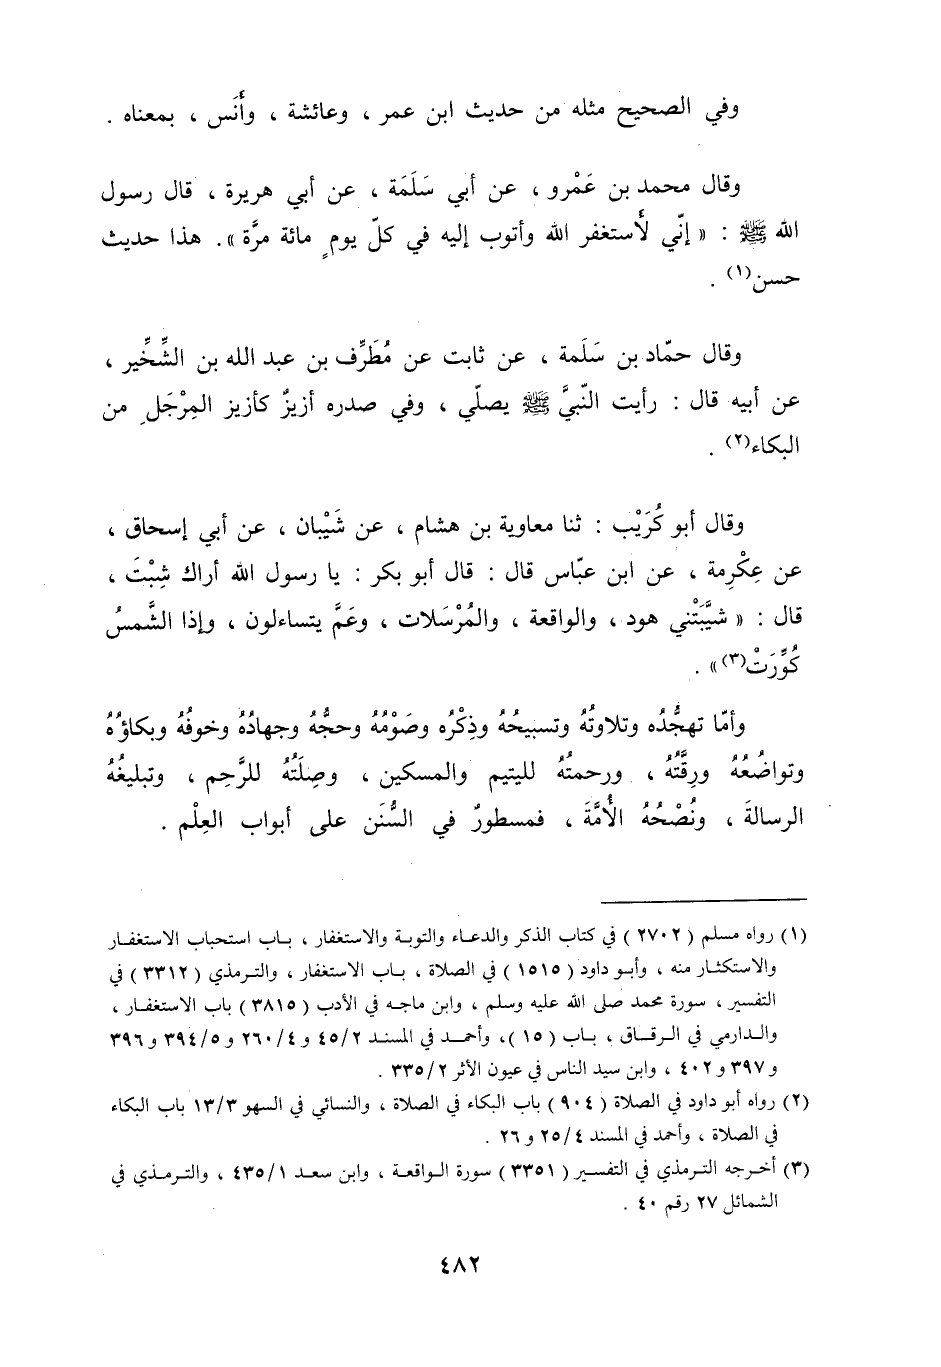 وفي الصحيح مثله من حديث ابن عمر ، وعائشة ، وأَنَس ، بمعناه .
وقال محمد بن عَمْرو ، عن أبي سَلَمَة ، عن أبي هريرة ، قال رسول
الله ﷺ : « إنّي لأستغفر الله وأتوب إليه في كلّ يومٍ مائة مرَّة ». هذا حديث
حسن(١) .
وقال حمّاد بن سَلَمة ، عن ثابت عن مُطَرِّف بن عبد الله بن الشِّخِّير ،
عن أبيه قال : رأيت النّبيَّ ﷺ يصلّي ، وفي صدره أزيزٌ كأزيز المِرْجَلِ من
البكاء(٢) .
وقال أبو كُرَيْب : ثنا معاوية بن هشام ، عن شَيْبان ، عن أبي إسحاق ،
عن عِكْرِمة ، عن ابن عبّاس قال : قال أبو بكر : يا رسول الله أراك شِبْتَ ،
قال : « شيَّبَتْني هود ، والواقعة ، والمُرْسَلات ، وعَمَّ يتساءلون ، وإذا الشَّمسُ
كُوِّرَتْ(٣)» .
وأمّا تهجُّده وتلاوتُهُ وتسبيحُهُ وذِكْرُه وصَوْمُهُ وحجُّهُ وجهادُهُ وخوفُهُ وبكاؤُهُ
وتواضُعُهُ ورِقَّتُهُ ، ورحمتُهُ لليتيم والمسكين ، وصِلَتُهُ للرَّحِم ، وتبليغُهُ
الرسالةَ ، ونُصْحُهُ الأُمَّةَ ، فمسطورٌ في السُّنَن على أبواب العِلْم .
(١) رواه مسلم ( ٢٧٠٢ ) في كتاب الذكر والدعاء والتوبة والاستغفار ، باب استحباب الاستغفار
والاستكثار منه ، وأبو داود ( ١٥١٥ ) في الصلاة ، باب الاستغفار ، والترمذي ( ٣٣١٢ ) في
التفسير ، سورة محمد صلى الله عليه وسلم ، وابن ماجه في الأدب ( ٣٨١٥ ) باب الاستغفار ،
والدارمي في الرقاق ، باب ( ١٥ )، وأحمد في المسند ٤٥/٢ و ٢٦٠/٤ و ٣٩٤/٥ و ٣٩٦
و ٣٩٧ و ٤٠٢ ، وابن سيد الناس في عيون الأثر ٣٣٥/٢ .
(٢) رواه أبو داود في الصلاة ( ٩٠٤ ) باب البكاء في الصلاة ، والنسائي في السهو ١٣/٣ باب البكاء
في الصلاة ، وأحمد في المسند ٢٥/٤ و ٢٦ .
(٣) أخرجه الترمذي في التفسير ( ٣٣٥١ ) سورة الواقعة ، وابن سعد ٤٣٥/١ ، والترمذي في
الشمائل ٢٧ رقم ٤٠ .
٤٨٢